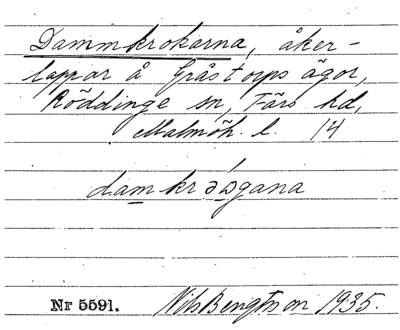 Dammkrokarna, åker-
lappar å Gråstorps ägor,
Röddinge sn, Färs hd,
Malmöh. l. 14
damkrǻꞷgana
Nr 5591. Nils Bengtsson 1935.